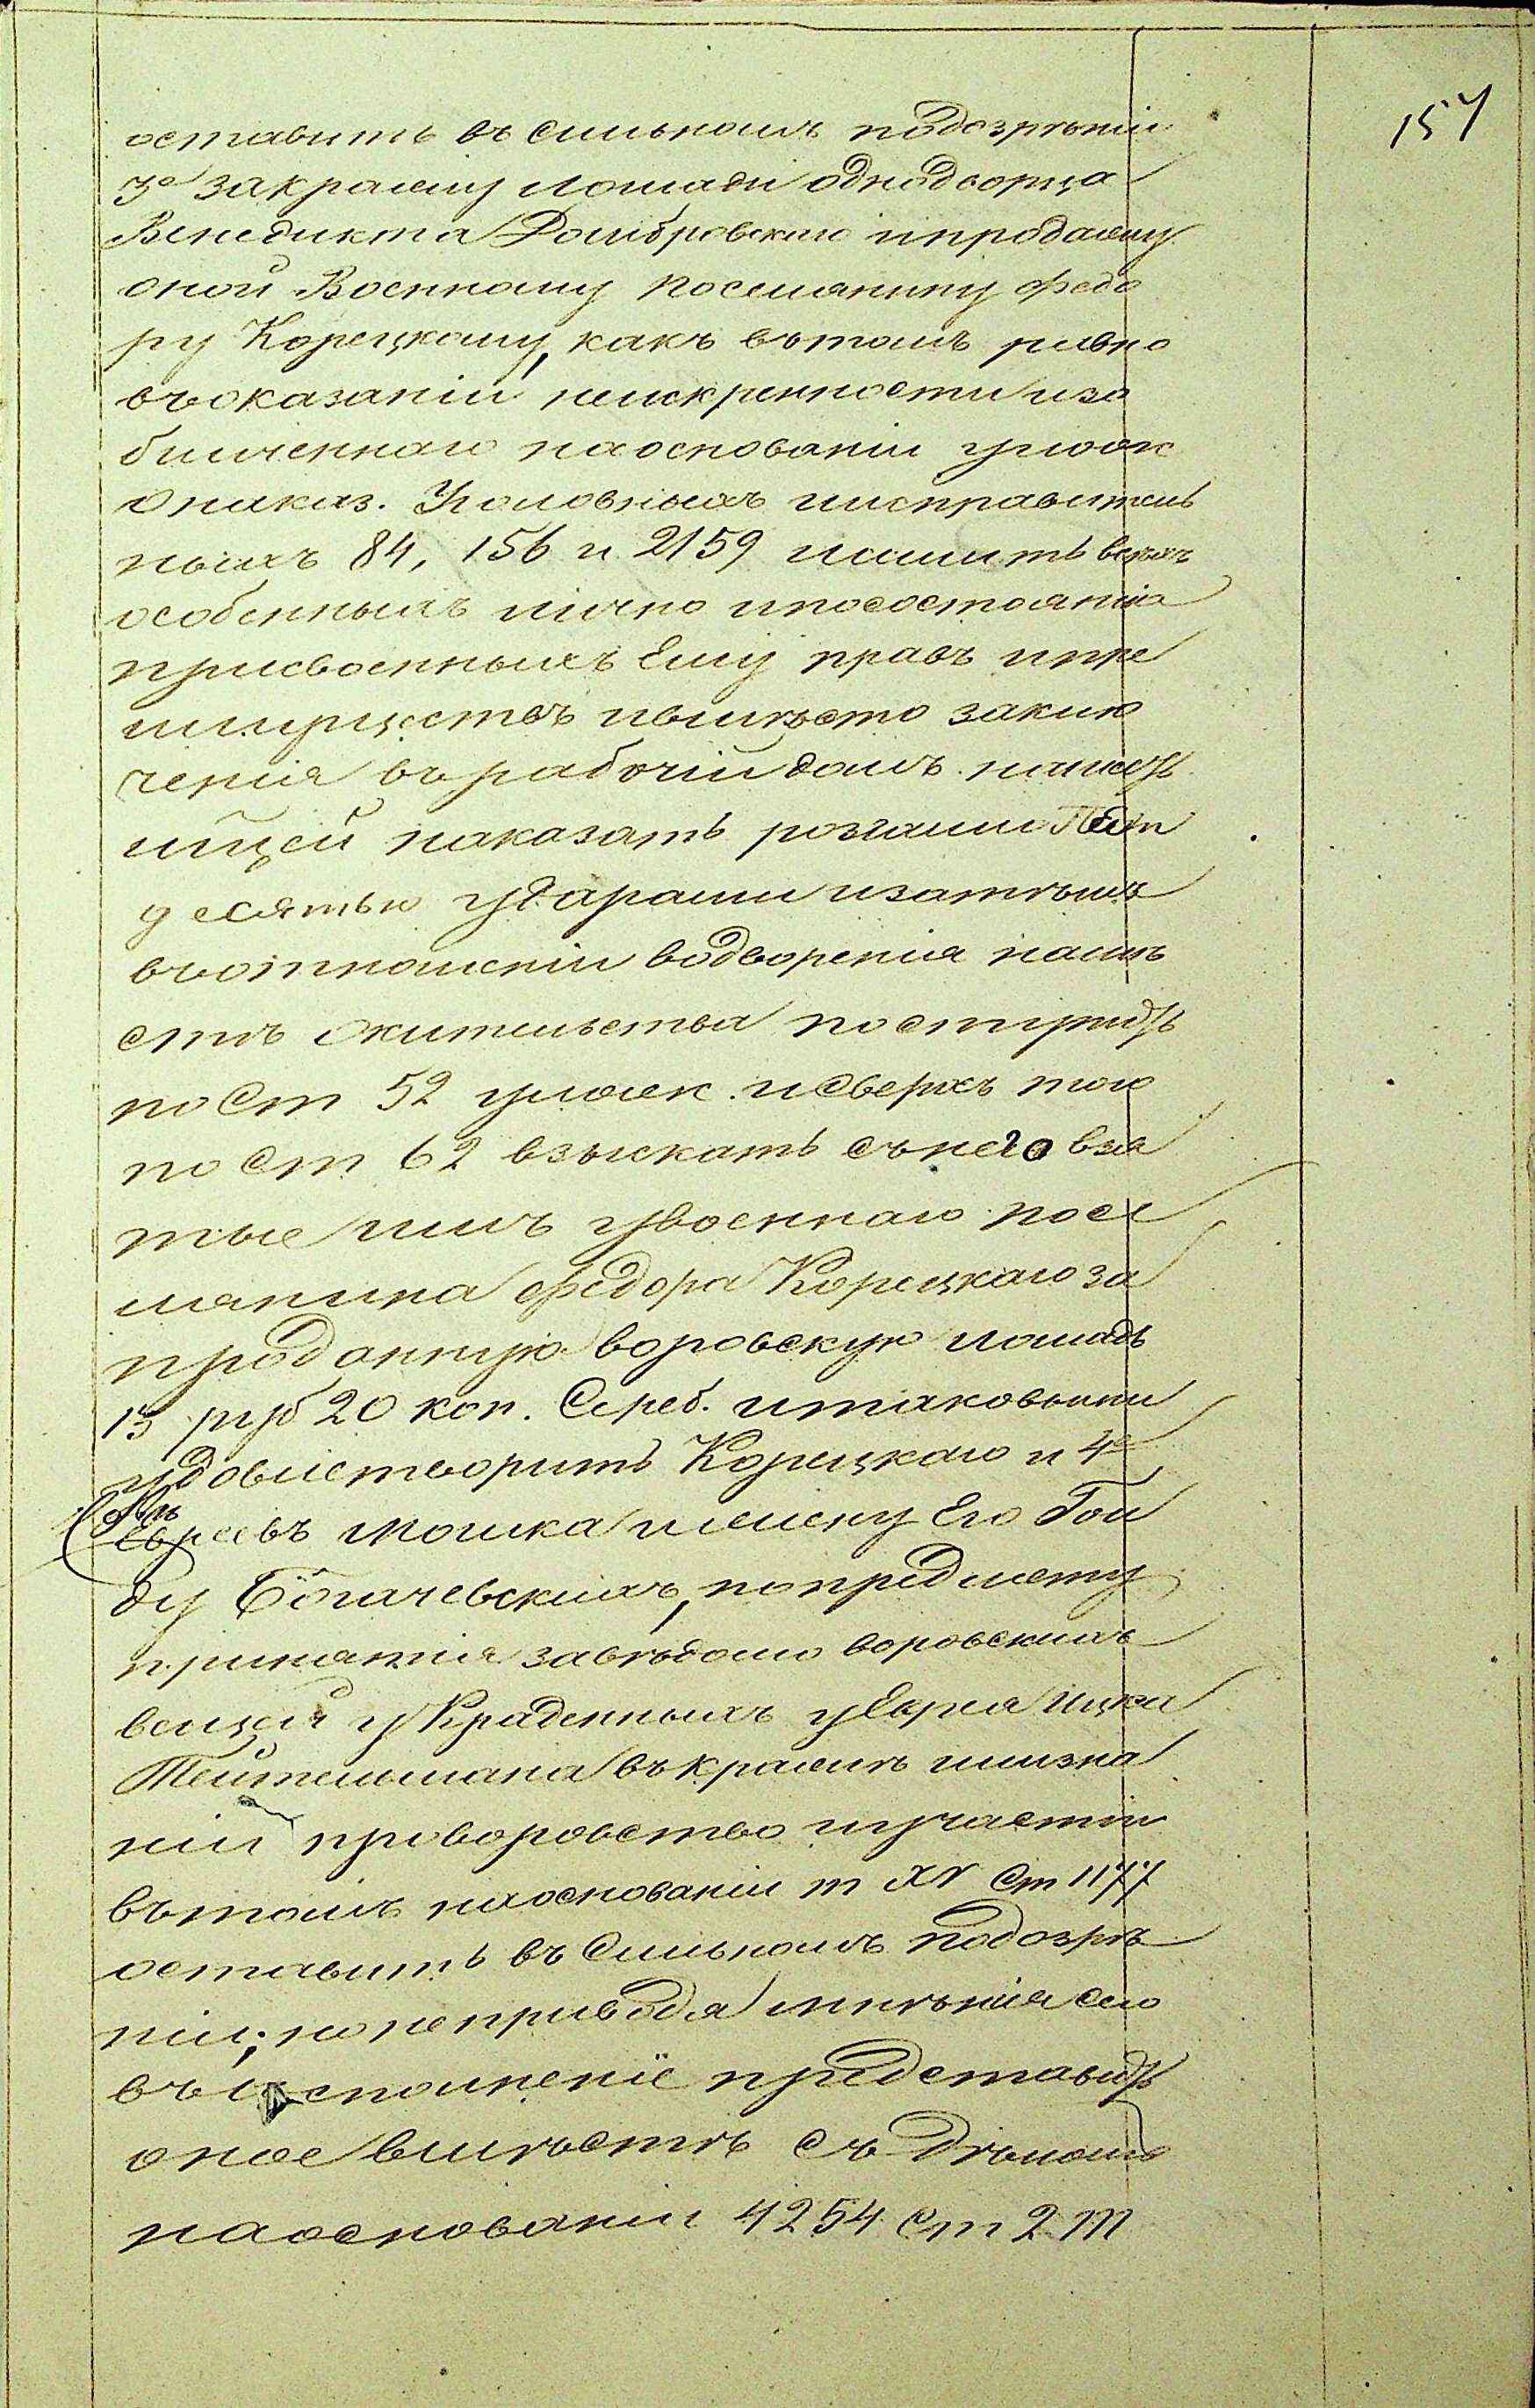 157
оставить въ сильномъ подозрѣніи
3е за кражу лошади однодворца
Венедикта Домбровскаго и продажу
оной Военному поселянину Федо
ру Корецкому, какъ въ томъ равно
въ оказаніи неискренности изо
бличеннаго на основаніи улож
о наказ. Уголовныхъ и исправитель
ныхъ 84, 156 и 2159 лишить всѣхъ
особенныхъ лично и по состоянію
присвоенныхъ Ему правъ и пре
имуществъ и вмѣсто заклю
ченія въ рабочій домъ
наказать розгами Пять
десятью ударами и затѣмъ
въ отношеніи водворенія на мѣ
стѣ жительства поступить
по Ст 52 улож. и сверхъ того
по Ст 62 взыскать съ него взя
тые имъ у военнаго посе
лянина Федора Корецкаго за
проданную воровскую лошадь
13 руб 20 коп. Сереб. и таковыми
удовлетворить Корецкаго и 4е
Евреевъ Мошка и жену Его Гой
ду Богачевскихъ, по предмету
принятія завѣдомо воровскихъ
вещей украденныхъ у Еврея Ицка
Тейтельмана въ кражѣ и незна
ніи про воровство и участіи
въ томъ на основаніи т XV Ст 1177
оставить въ Сильномъ подозрѣ
ніи; но не приводя мнѣнія сего
въ исполненіе представить
оное вмѣстѣ съ дѣломъ
на основаніи 4254 Ст 2 т